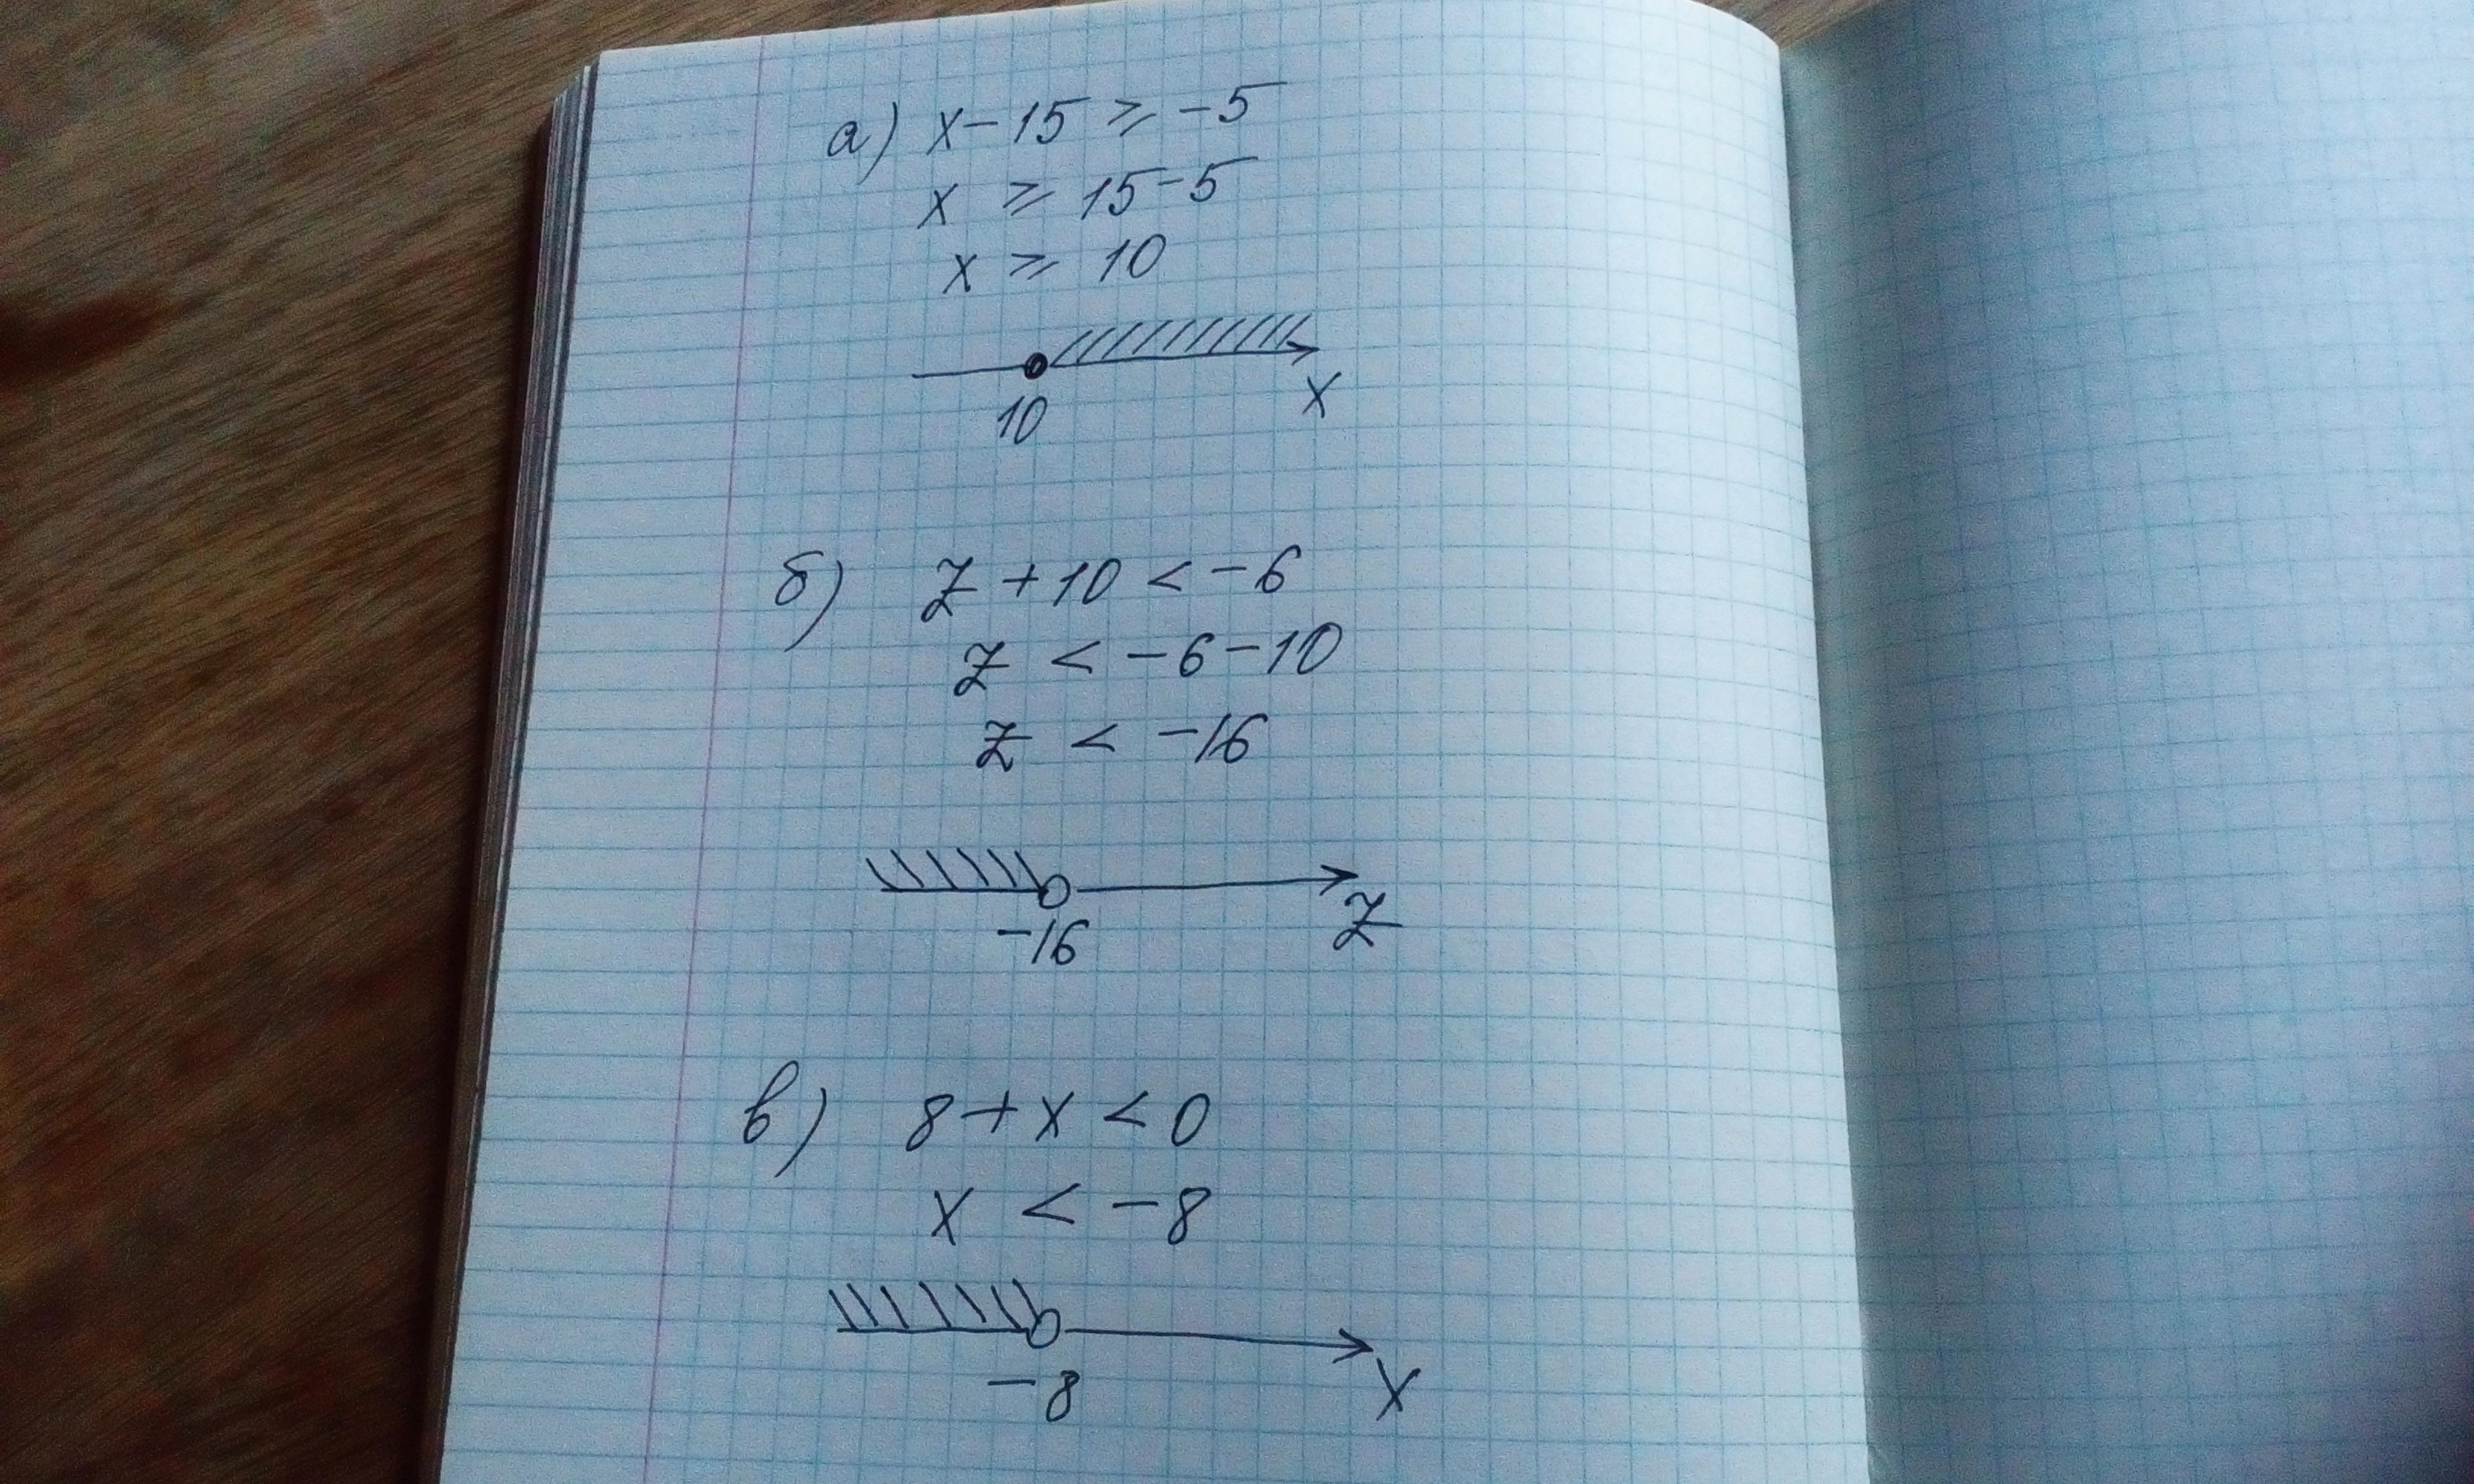 а) x - 15 ⩾ -5
x ⩾ 15 - 5
x ⩾ 10
10 x
б) z + 10 < -6
z < -6 - 10
z < -16
-16 z
в) 8 + x < 0
x < -8
-8 x